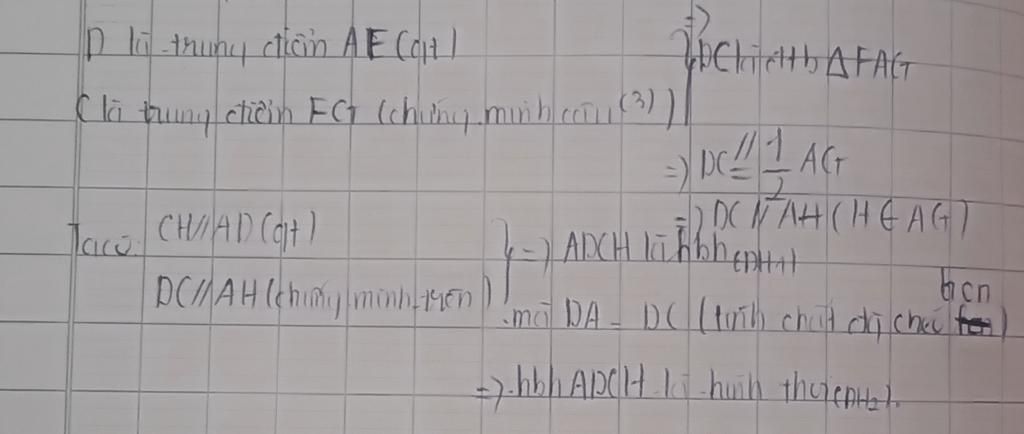 D là trung điểm AE (gt)
C là trung điểm EG (chứng minh câu (3))
=> DC là đttb Δ FAG
=> DC //= 1/2 AG
=> DC // AH (H ∈ AG)
Ta có: CH // AD (gt)
DC // AH (chứng minh trên)
=> ADCH là hbh (DH1)
mà DA = DC (tính chất đg chéo hcn)
=> hbh ADCH là hình thoi (DH2).